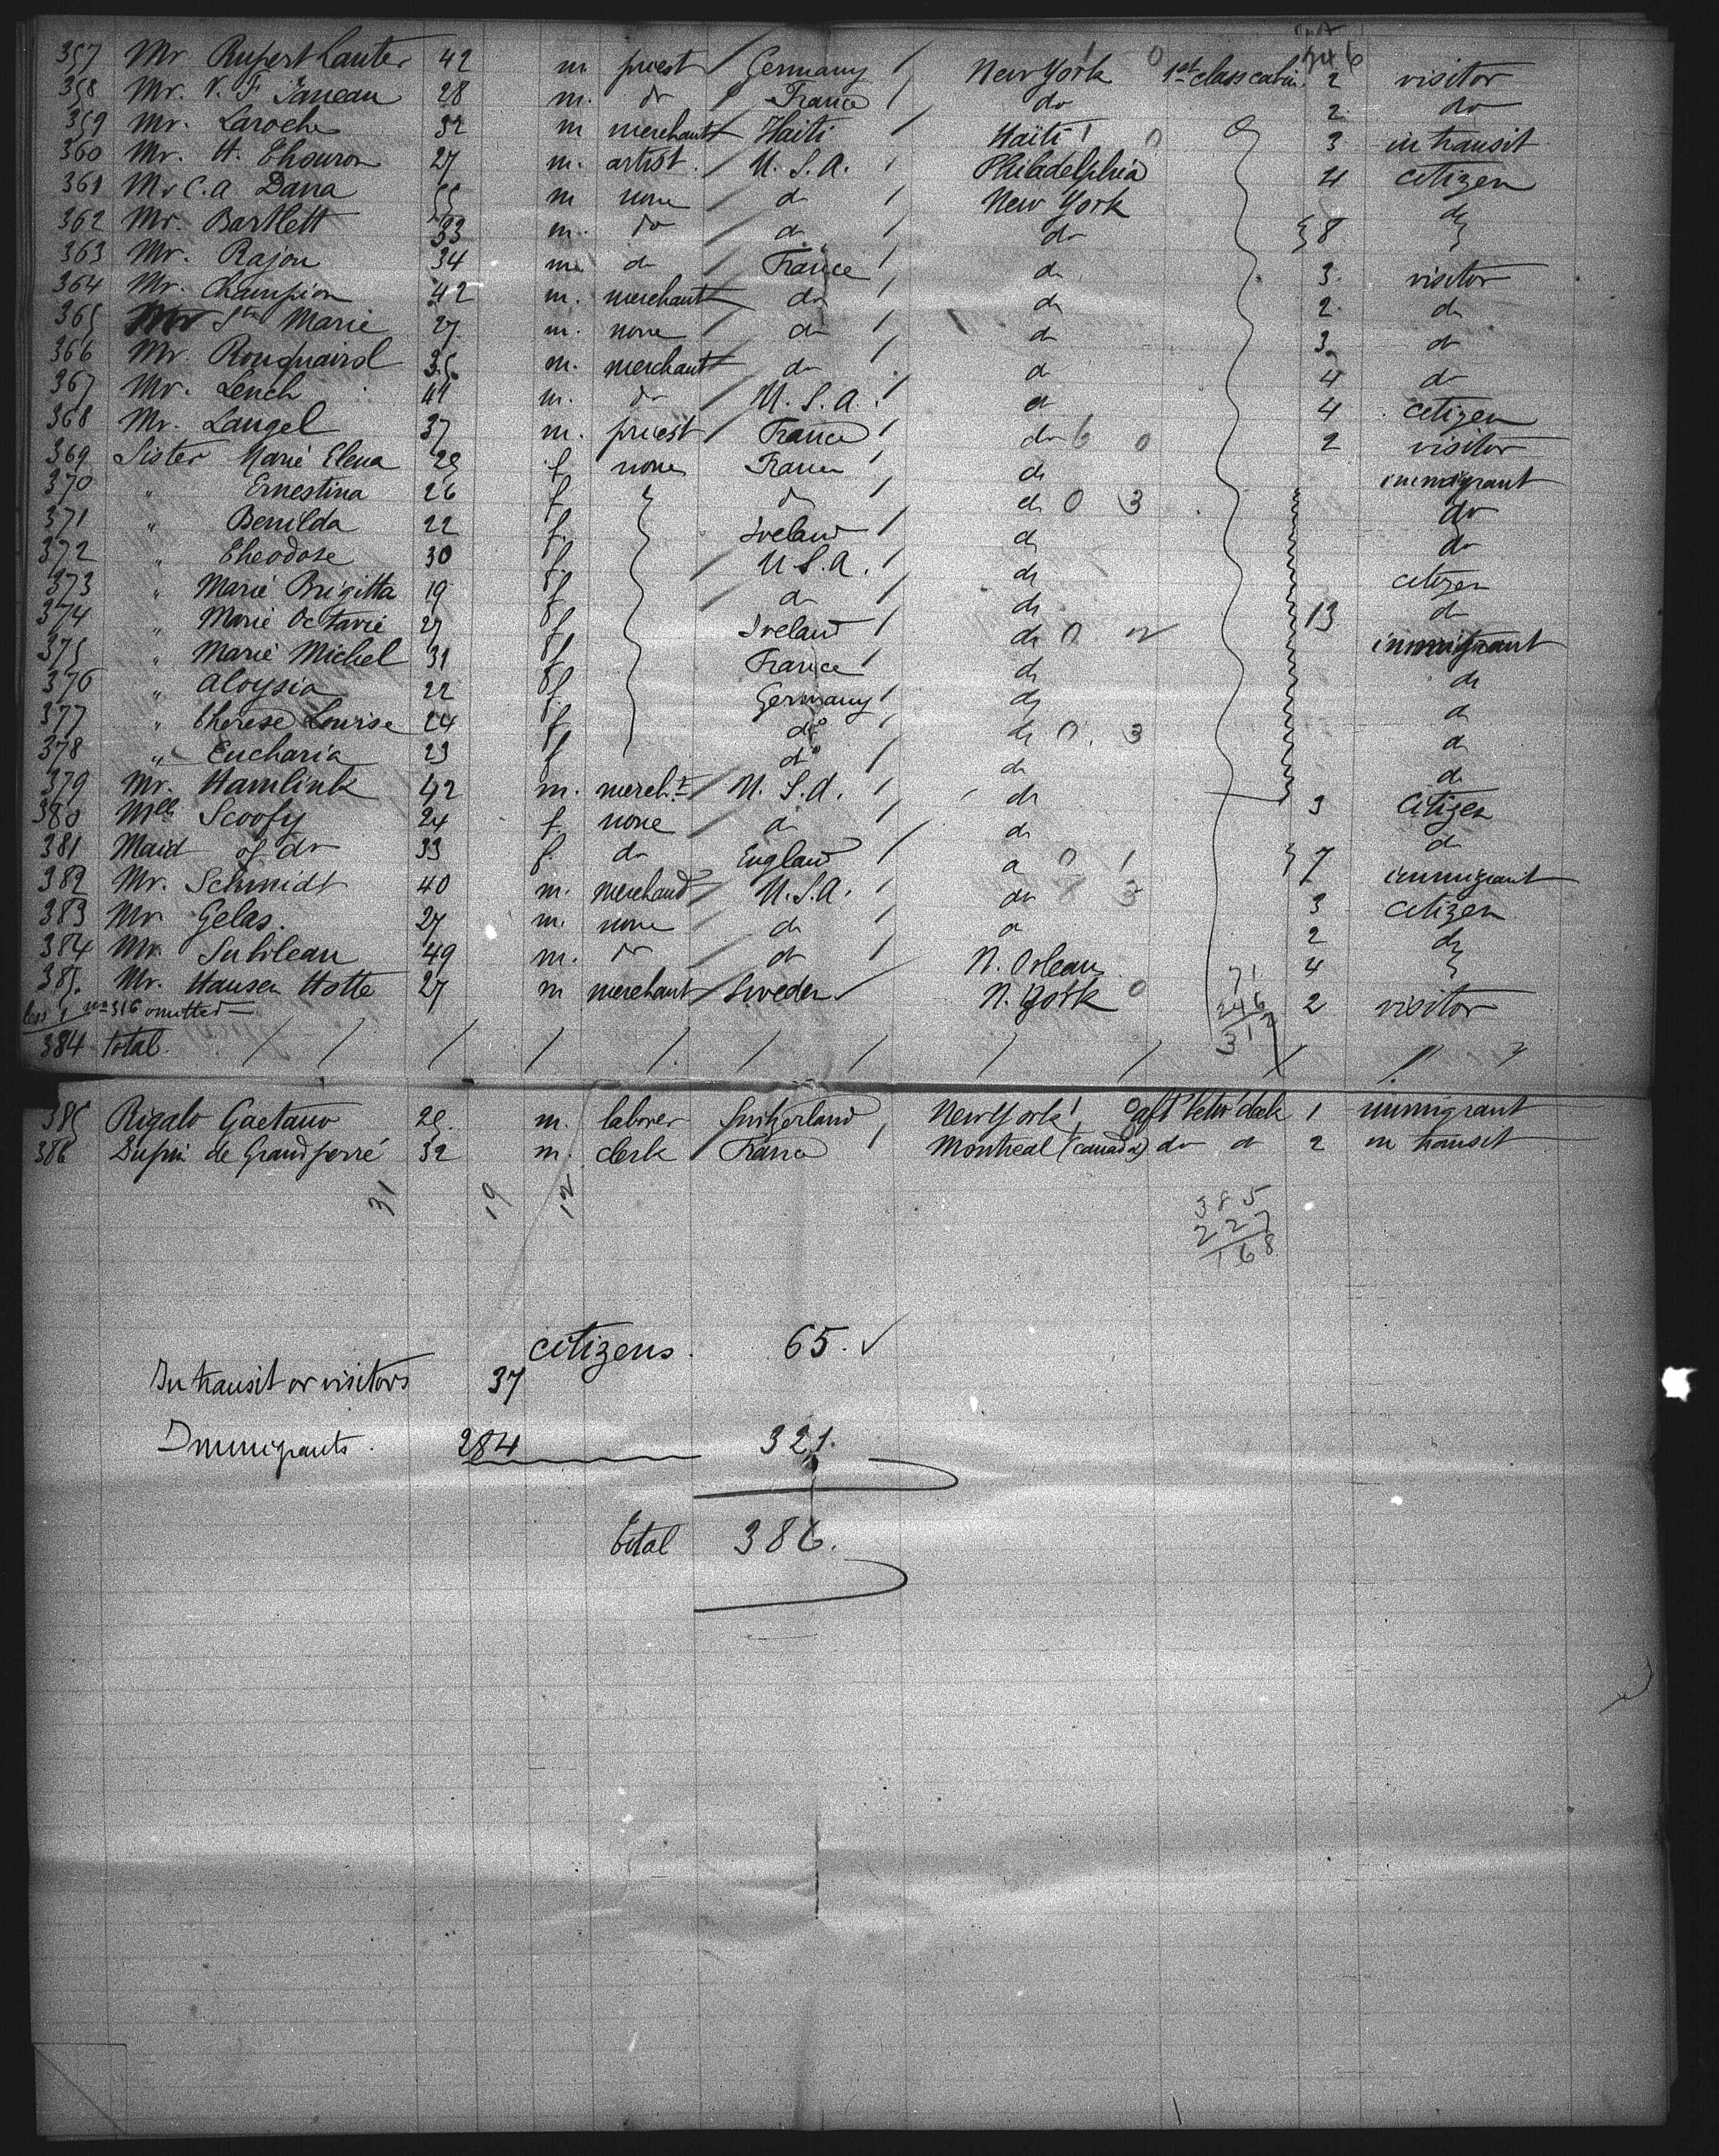 246
357 Mr Rupert Lauter 42 m priest / Germany / New York 0 1st class cabin. 2 visitor
358 Mr. V. F Janeau 28 m. do / France / do 2 do
359 Mr. Laroche 32 m merchant / Haiti / Haïti 0 3 in transit
360 Mr. H. Thouron 27 m. artist. / U. S. A. / Philadelphia 4 citizen
361 Mr C. A Dana 55 m none / do / New York do
362 Mr. Bartlett 33 m. do / do / do } 8 }
363 Mr. Rajon 34 m do / France / do 3. visitor
364 Mr. Champion 42 m. merchant / do / do 2. do
365 Mr Ste Marie 27 m. none / do / do 3 do
366 Mr. Rouquairol 35. m. merchant / do / do 4 do
367 Mr. Lench 41 m. do / U. S. A. / do 4 citizen
368 Mr. Laugel 37 m. priest / France / do 6 0 2 visitor
369 Sister Marie Elena 29 f none / France / do immigrant
370 " Ernestina 26 f do / do 0 3 do
371 " Benilda 22 f. Ireland / do do
372 " Theodose 30 f / U S. A. / do citizen
373 " Marie Brigitta 19 f / do / do do
374 " Marie Octavie 27 f Ireland / do 0 2 13 immigrant
375 " Marie Michel 31 f France / do do
376 " Aloysia 22 f Germany / do do
377 " Therese Louise 24 f do / do 0. 3 do
378 " Eucharia 23 f do / do do
379 Mr. Hamlink 42 m. mercht / U. S. A. / do 3 Citizen
380 Melle Scoofy 24 f. none / do / do do
381 Maid of do 33 f. do England / do 0 1 } 7 immigrant
382 Mr. Schmidt 40 m. merchand / U. S. A. / do 8 3 3 citizen
383 Mr Gelas. 27 m. none / do / do 2 do
384 Mr. Subileau 49 m. do / do / N. Orleans 71 4 }
385. Mr. Hansen Hotte 27 m merchant / Sweden / N. York 0 246 2 visitor
less 1 no 316 omitted 317
384 total.
385 Rigalo Gaetano 29. m. laborer Switzerland / New York aft betw deck 1 immigrant
386 Dupin de Grandperré 32 m. clerk France / Montreal (Canada) do do 2 in transit
31 19 12 385
227
168
citizens. 65. ✓
In transit or visitors 37
Immigrants. 284 321.
Total 386.